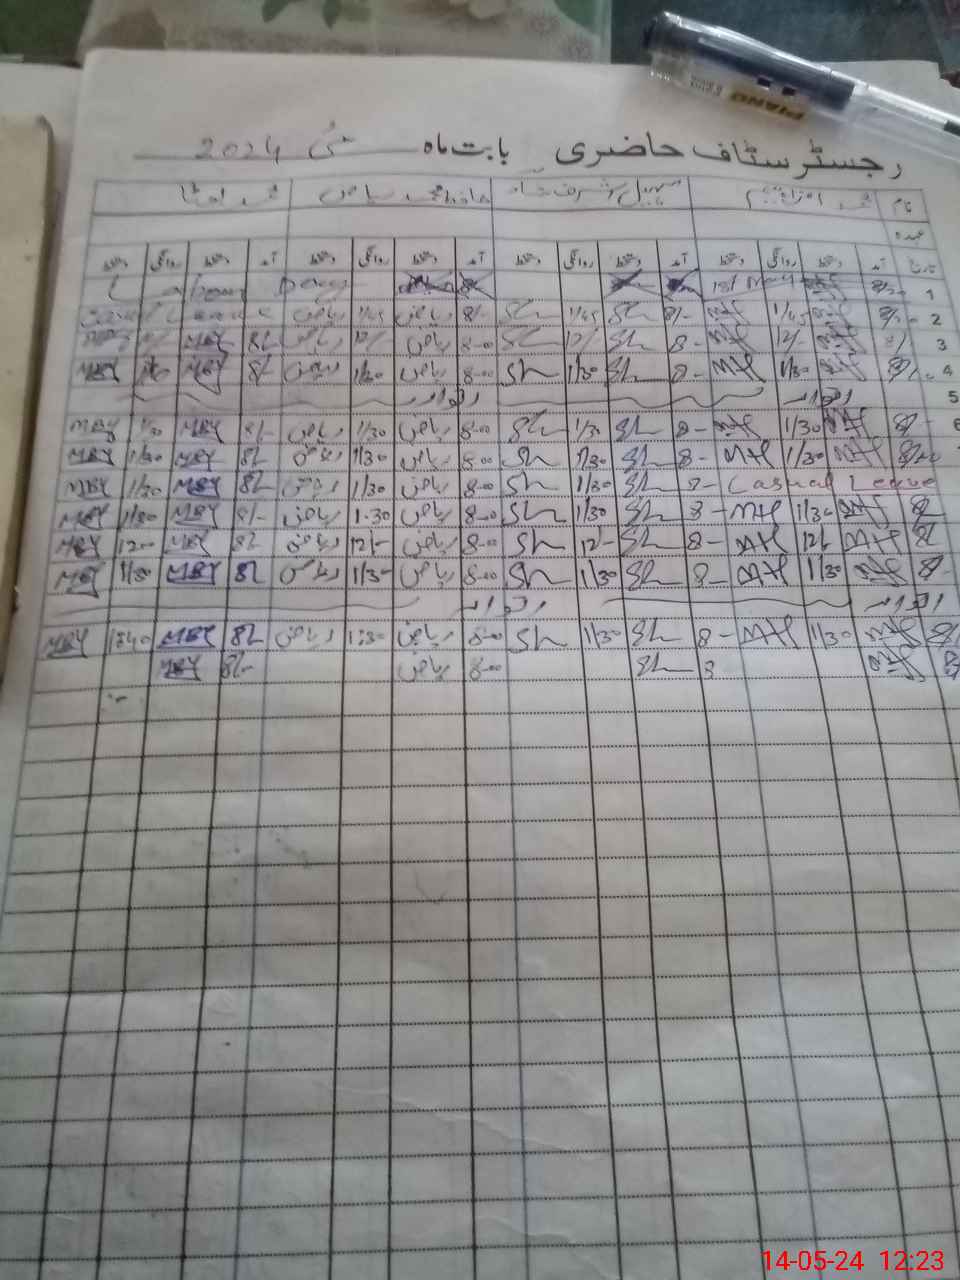 PIANO
رجسٹر سٹاف حاضری بابت ماہ مئی 2024
نام محمد سہیل اشرف حافظ محمد ریاض محمد
عہدہ
تاریخ آمد دستخط روانگی دستخط آمد دستخط روانگی دستخط آمد دستخط روانگی دستخط آمد دستخط روانگی دستخط
1 8/- 1st May Labour Day
2 8/- MH 1/45 MH 8/- Sh 1/45 Sh 8/- ریاض 1/45 ریاض Casual Leave
3 8/ MH 12/- MH 8- Sh 12/- Sh 8-00 ریاض 12/- ریاض 8/- MBY MBY
4 8/- MH 1/30 MH 8- Sh 1/30 Sh 8-00 ریاض 1/30 ریاض 8/- MBY MBY
5 اتوار اتوار
6 8/- MH 1/30 MH 8- Sh 1/30 Sh 8-00 ریاض 1/30 ریاض 8/- MBY 1/30 MBY
8/- MH 1/30 MH 8- Sh 1/30 Sh 8-00 ریاض 1/30 ریاض 8/- MBY 1/30 MBY
Casual Leave 8- Sh 1/30 Sh 8-00 ریاض 1/30 ریاض 8/- MBY 1/30 MBY
8/- MH 1/30 MH 8- Sh 1/30 Sh 8-00 ریاض 1-30 ریاض 8/- MBY 1/30 MBY
8/- MH 12/- MH 8- Sh 12- Sh 8-00 ریاض 12/- ریاض 8/- MBY 12-- MBY
8/- MH 1/30 MH 8- Sh 1/30 Sh 8-00 ریاض 1/30 ریاض 8/- MBY 1/30 MBY
اتوار اتوار
8/- MH 1/30 MH 8- Sh 1/30 Sh 8-00 ریاض 1:30 ریاض 8/- MBY 1:40 MBY
8/- MH 8 Sh 8-00 ریاض 8/- MBY
14-05-24 12:23